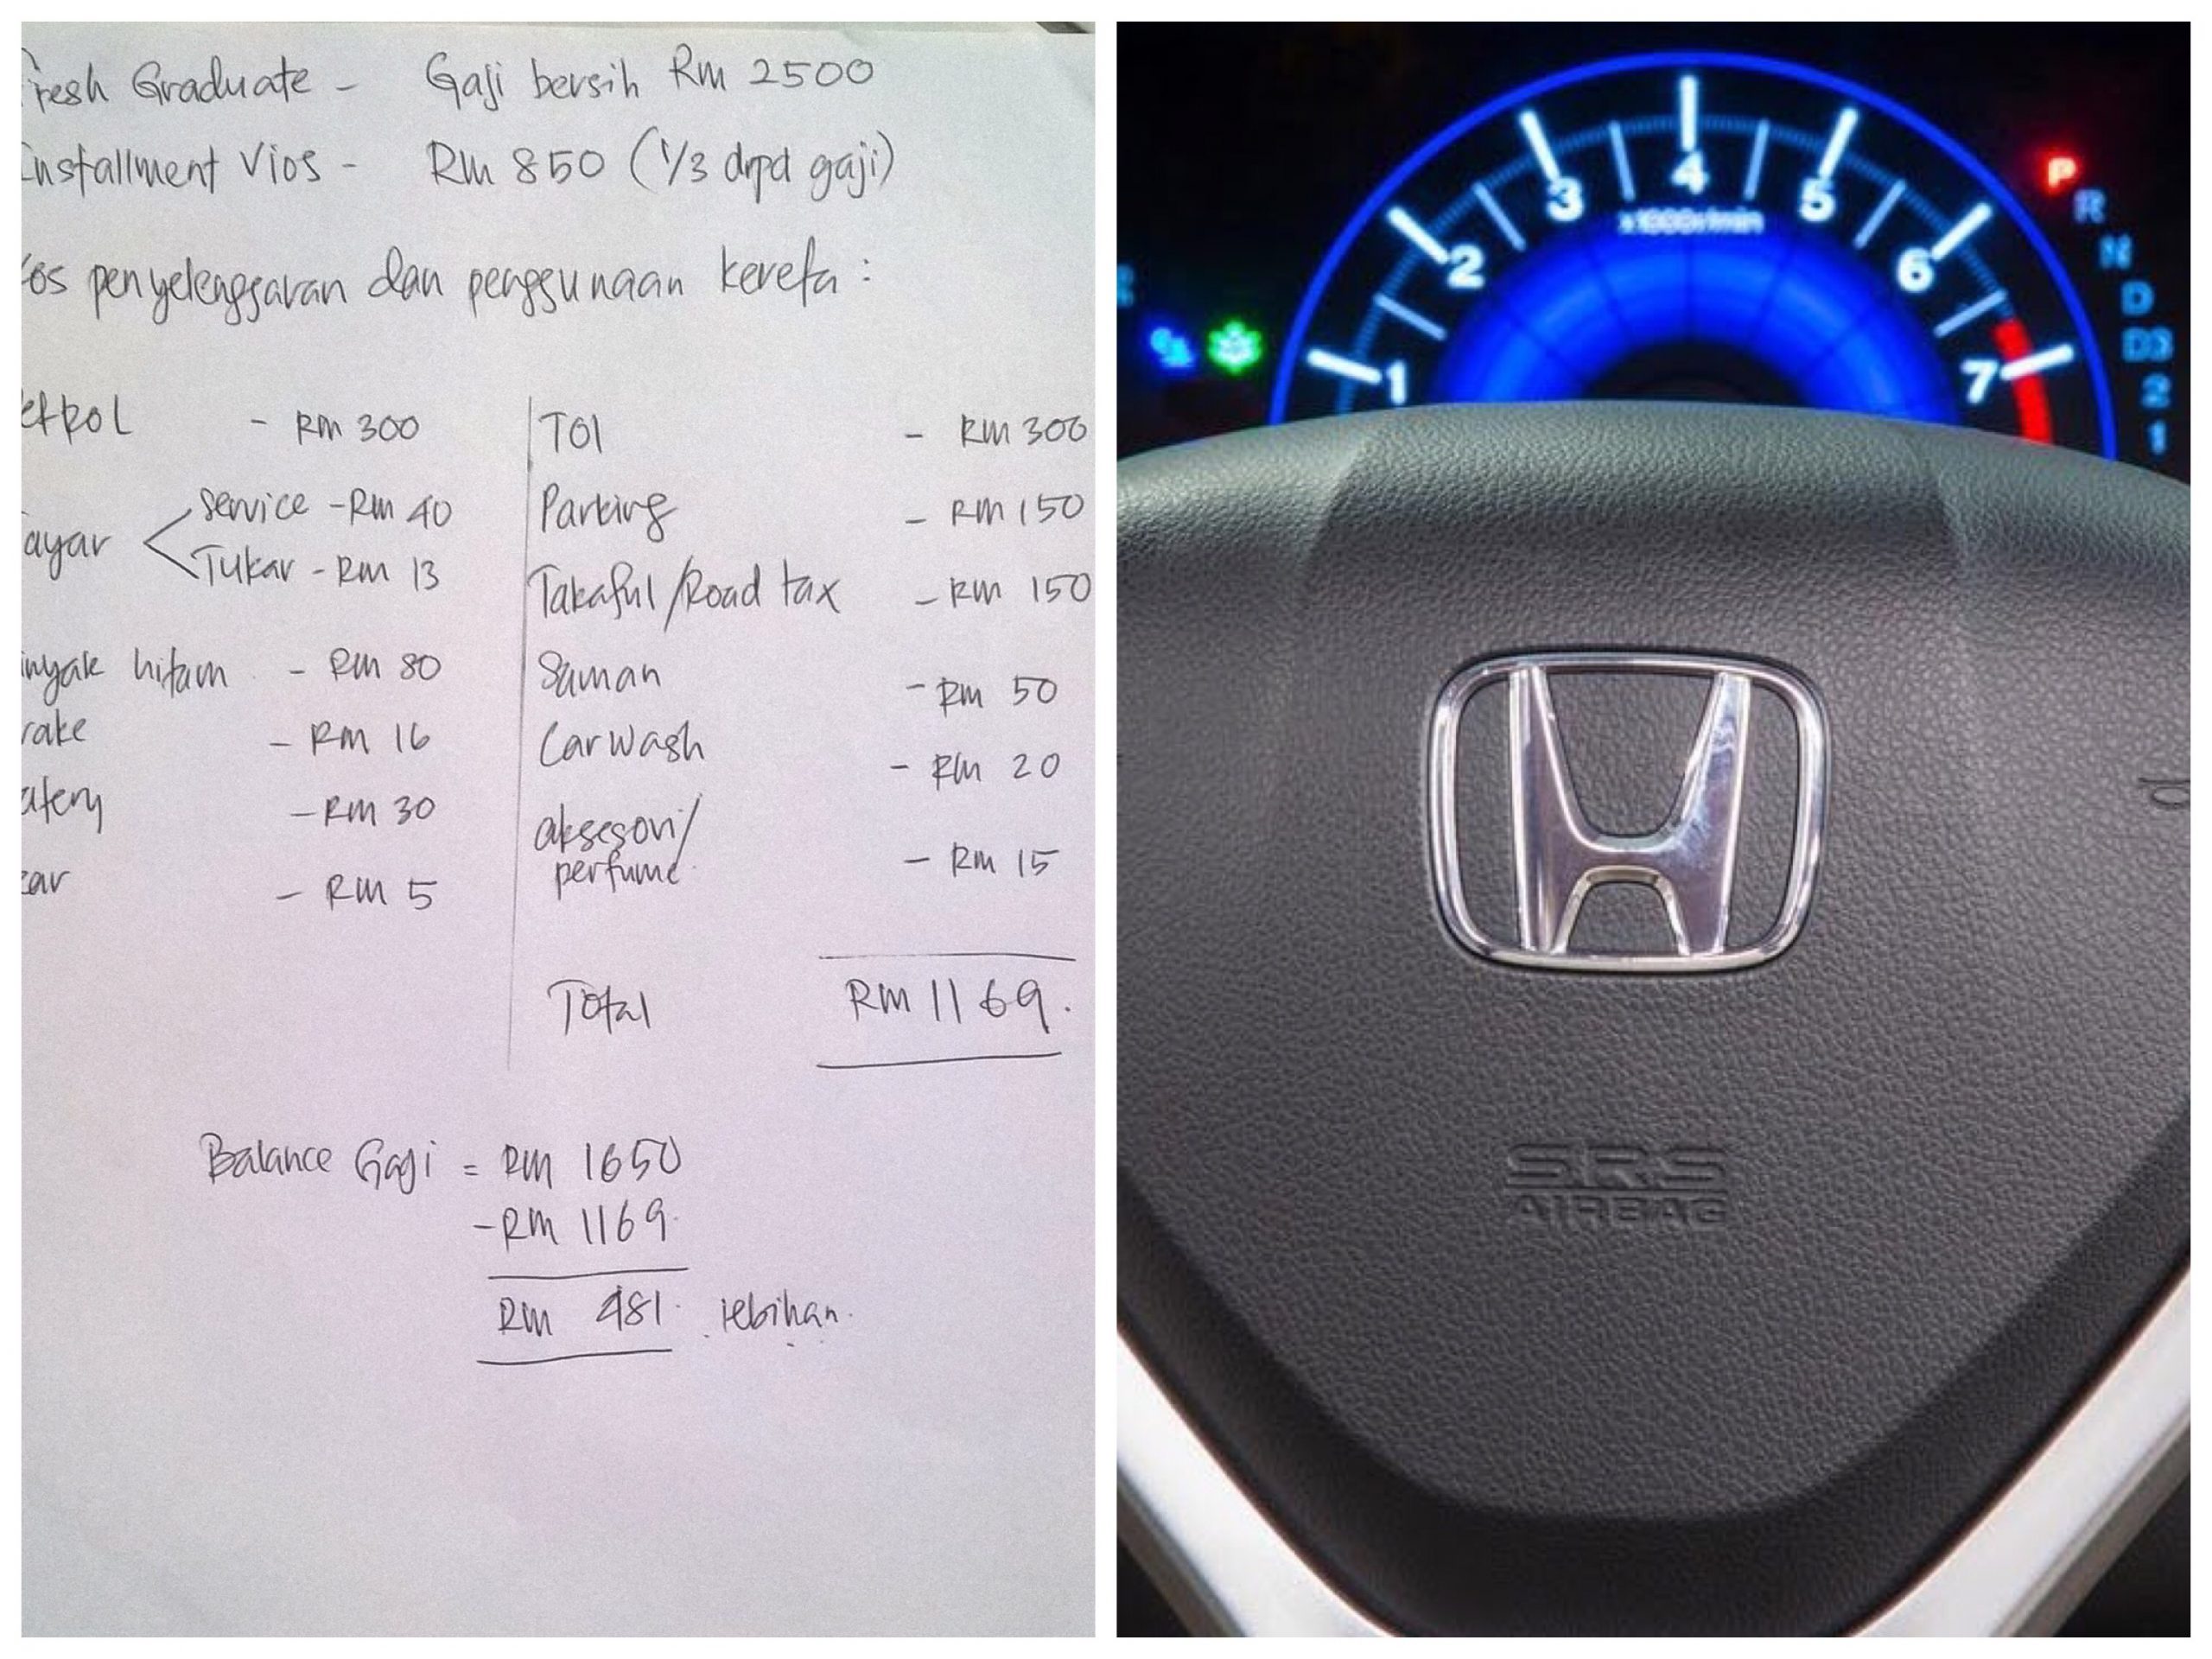 resh Graduate - Gaji bersih Rm 2500
Installment Vios - Rm 850 (1/3 drpd gaji)
os penyelenggaran dan penggunaan kereta :
etrol - RM 300
ayar
service - Rm 40
Tukar - Rm 13
inyak hitam - RM 80
rake - RM 16
atery - RM 30
ar - RM 5
TOl - RM 300
Parking - RM 150
Takaful/Road tax - RM 150
Saman - RM 50
Carwash - RM 20
aksesori/
perfume - RM 15
Total RM 1169.
Balance Gaji = RM 1650
-RM 1169.
RM 481. lebihan.
1
2
3
4
5
6
7
x1000r/min
P
R
N
D
D3
2
1
SRS
AIRBAG